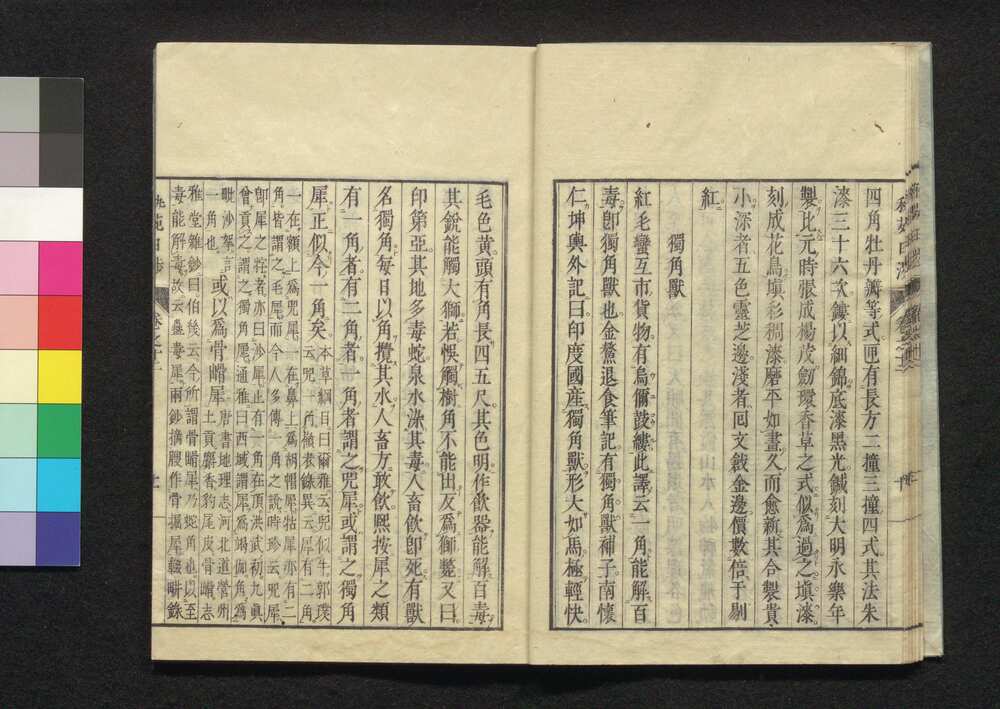 四角牡丹瓣等式匣有長方二撞三撞四式其法朱
漆三十六次鏤以細錦底漆黑光鍼刻大明永樂年
製比元時張成楊茂劒環香草之式似爲過之塡漆
刻成花鳥塡彩稠漆磨平如畫久而愈新其合製貴
小深者五色靈芝邊淺者回文戧金邊價數倍于剔
紅
獨角獸
紅毛蠻互市貨物有烏爾鼓縷此譯云一角能解百
毒卽獨角獸也金鰲退食筆記有獨角獸補子南懷
仁坤輿外記曰印度國産獨角獸形大如馬極輕快
毛色黄頭有角長四五尺其色明作飮器能解百毒
其銳能觸大獅若悞觸樹角不能出反爲獅斃又曰
印第亞其地多毒蛇泉水染其毒人畜飮卽死有獸
名獨角每日以角攪其水人畜方敢飮熙按犀之類
有一角者有二角者一角者謂之兕犀或謂之獨角
犀正似今一角矣本草綱目曰爾雅云兕似牛郭璞
云兕一角嶺表錄異云犀有二角
一在額上爲兕犀一在鼻上爲胡帽犀牯犀亦有二
角皆謂之毛犀而今人多傳一角之說時珍云兕犀
卽犀之牸者亦曰沙犀止有一角在頂洪武初九眞
曾貢之謂之獨角犀通雅曰西域謂犀爲朅伽角爲
毗沙拏言
一角也或以爲骨㟙犀唐書地理志河北道營州
土貢麝香豹尾皮骨㟙志
雅堂雜鈔曰伯機云今所謂骨㟙犀乃蛇角也以至
毒能解毒故云蠱毒犀兩鈔摘腴作骨㩴犀輟畊錄